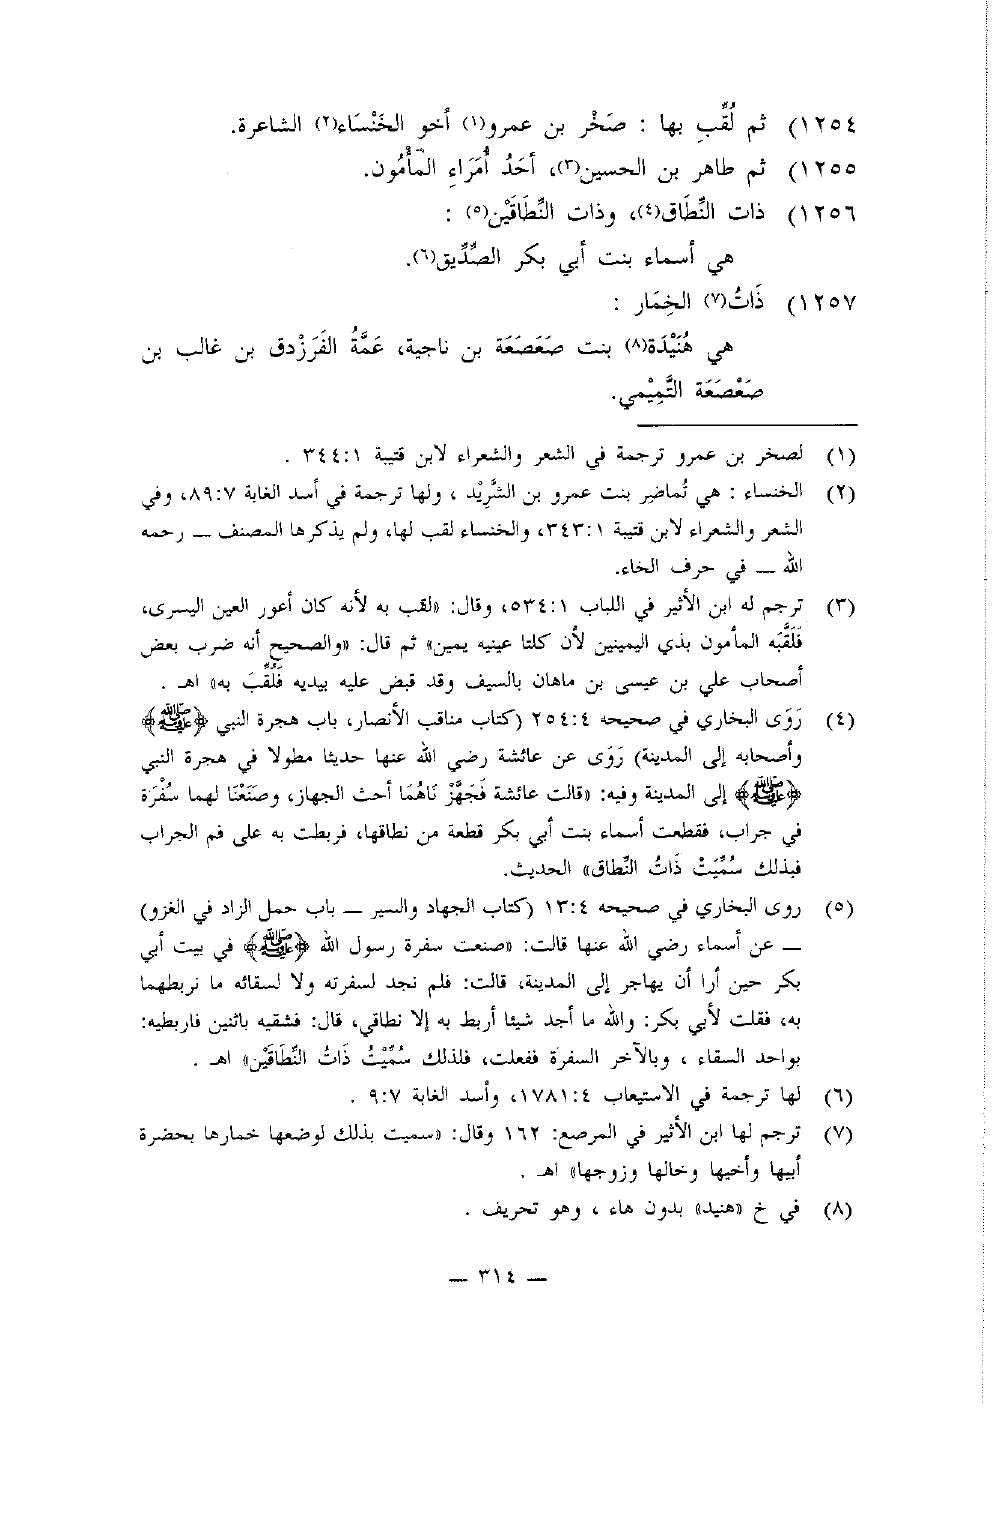 ١٢٥٤) ثم لُقِّبِ بها : صَخْر بن عمرو(١) أخو الخَنْسَاء(٢) الشاعرة.
١٢٥٥) ثم طاهر بن الحسين(٣)، أحَدُ أُمَرَاءِ المَأْمُون.
١٢٥٦) ذات النِّطَاق(٤)، وذات النِّطَاقَيْن(٥) :
هي أسماء بنت أبي بكر الصِّدِّيق(٦).
١٢٥٧) ذَاتُ(٧) الخِمَار :
هي هُنَيْدَة(٨) بنت صَعَصَعَة بن ناجية، عَمَّةُ الفَرَزْدق بن غالب بن
صَعْصَعَة التَّمِيْمي.
(١) لصخر بن عمرو ترجمة في الشعر والشعراء لابن قتيبة ٣٤٤:١ .
(٢) الخنساء : هي تُماضِر بنت عمرو بن الشَّرِيْد ، ولها ترجمة في أسد الغابة ٨٩:٧، وفي
الشعر والشعراء لابن قتيبة ٣٤٣:١، والخنساء لقب لها، ولم يذكرها المصنف ــ رحمه
الله ــ في حرف الخاء.
(٣) ترجم له ابن الأثير في اللباب ٥٣٤:١، وقال: «لقب به لأنه كان أعور العين اليسرى،
فَلَقَّبَه المأمون بذي اليمينين لأن كلتا عينيه يمين» ثم قال: «والصحيح أنه ضرب بعض
أصحاب علي بن عيسى بن ماهان بالسيف وقد قبض عليه بيديه فَلُقِّبَ به» اهـ .
(٤) رَوَى البخاري في صحيحه ٢٥٤:٤ (كتاب مناقب الأنصار، باب هجرة النبي ﴿ﷺ﴾
وأصحابه إلى المدينة) رَوَى عن عائشة رضي الله عنها حديثا مطولا في هجرة النبي
﴿ﷺ﴾ إلى المدينة وفيه: «قالت عائشة فَجَهَّزْ نَاهُمَا أحث الجهاز، وصنَعْنَا لهما سُفْرَة
في جراب، فقطعت أسماء بنت أبي بكر قطعة من نطاقها، فربطت به على فم الجراب
فبذلك سُمِّيَتْ ذَاتُ النِّطاق» الحديث.
(٥) روى البخاري في صحيحه ١٣:٤ (كتاب الجهاد والسير ــ باب حمل الزاد في الغزو)
ــ عن أسماء رضي الله عنها قالت: «صنعت سفرة رسول الله ﴿ﷺ﴾ في بيت أبي
بكر حين أرا أن يهاجر إلى المدينة، قالت: فلم نجد لسفرته ولا لسقائه ما نربطهما
به، فقلت لأبي بكر: والله ما أجد شيئا أربط به إلا نطاقي، قال: فشقيه باثنين فاربطيه:
بواحد السقاء ، وبالآخر السفرة ففعلت، فلذلك سُمِّيْتُ ذَاتُ النِّطَاقَيْن» اهـ .
(٦) لها ترجمة في الاستيعاب ١٧٨١:٤، وأسد الغابة ٩:٧ .
(٧) ترجم لها ابن الأثير في المرصع: ١٦٢ وقال: «سميت بذلك لوضعها خمارها بحضرة
أبيها وأخيها وخالها وزوجها» اهـ .
(٨) في خ «هنيد» بدون هاء ، وهو تحريف .
ــ ٣١٤ ــ